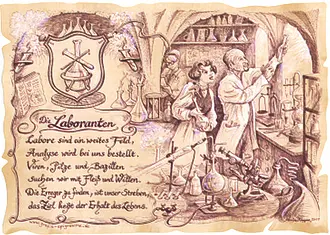 Die
Laboranten
Labore sind ein weites Feld,
Analyse wird bei uns bestellt.
Viren, Pilze und Bazillen
suchen wir mit Fleiß und Willen.
Die Erreger zu finden, ist unser Streben,
das Ziel heißt der Erhalt des Lebens.